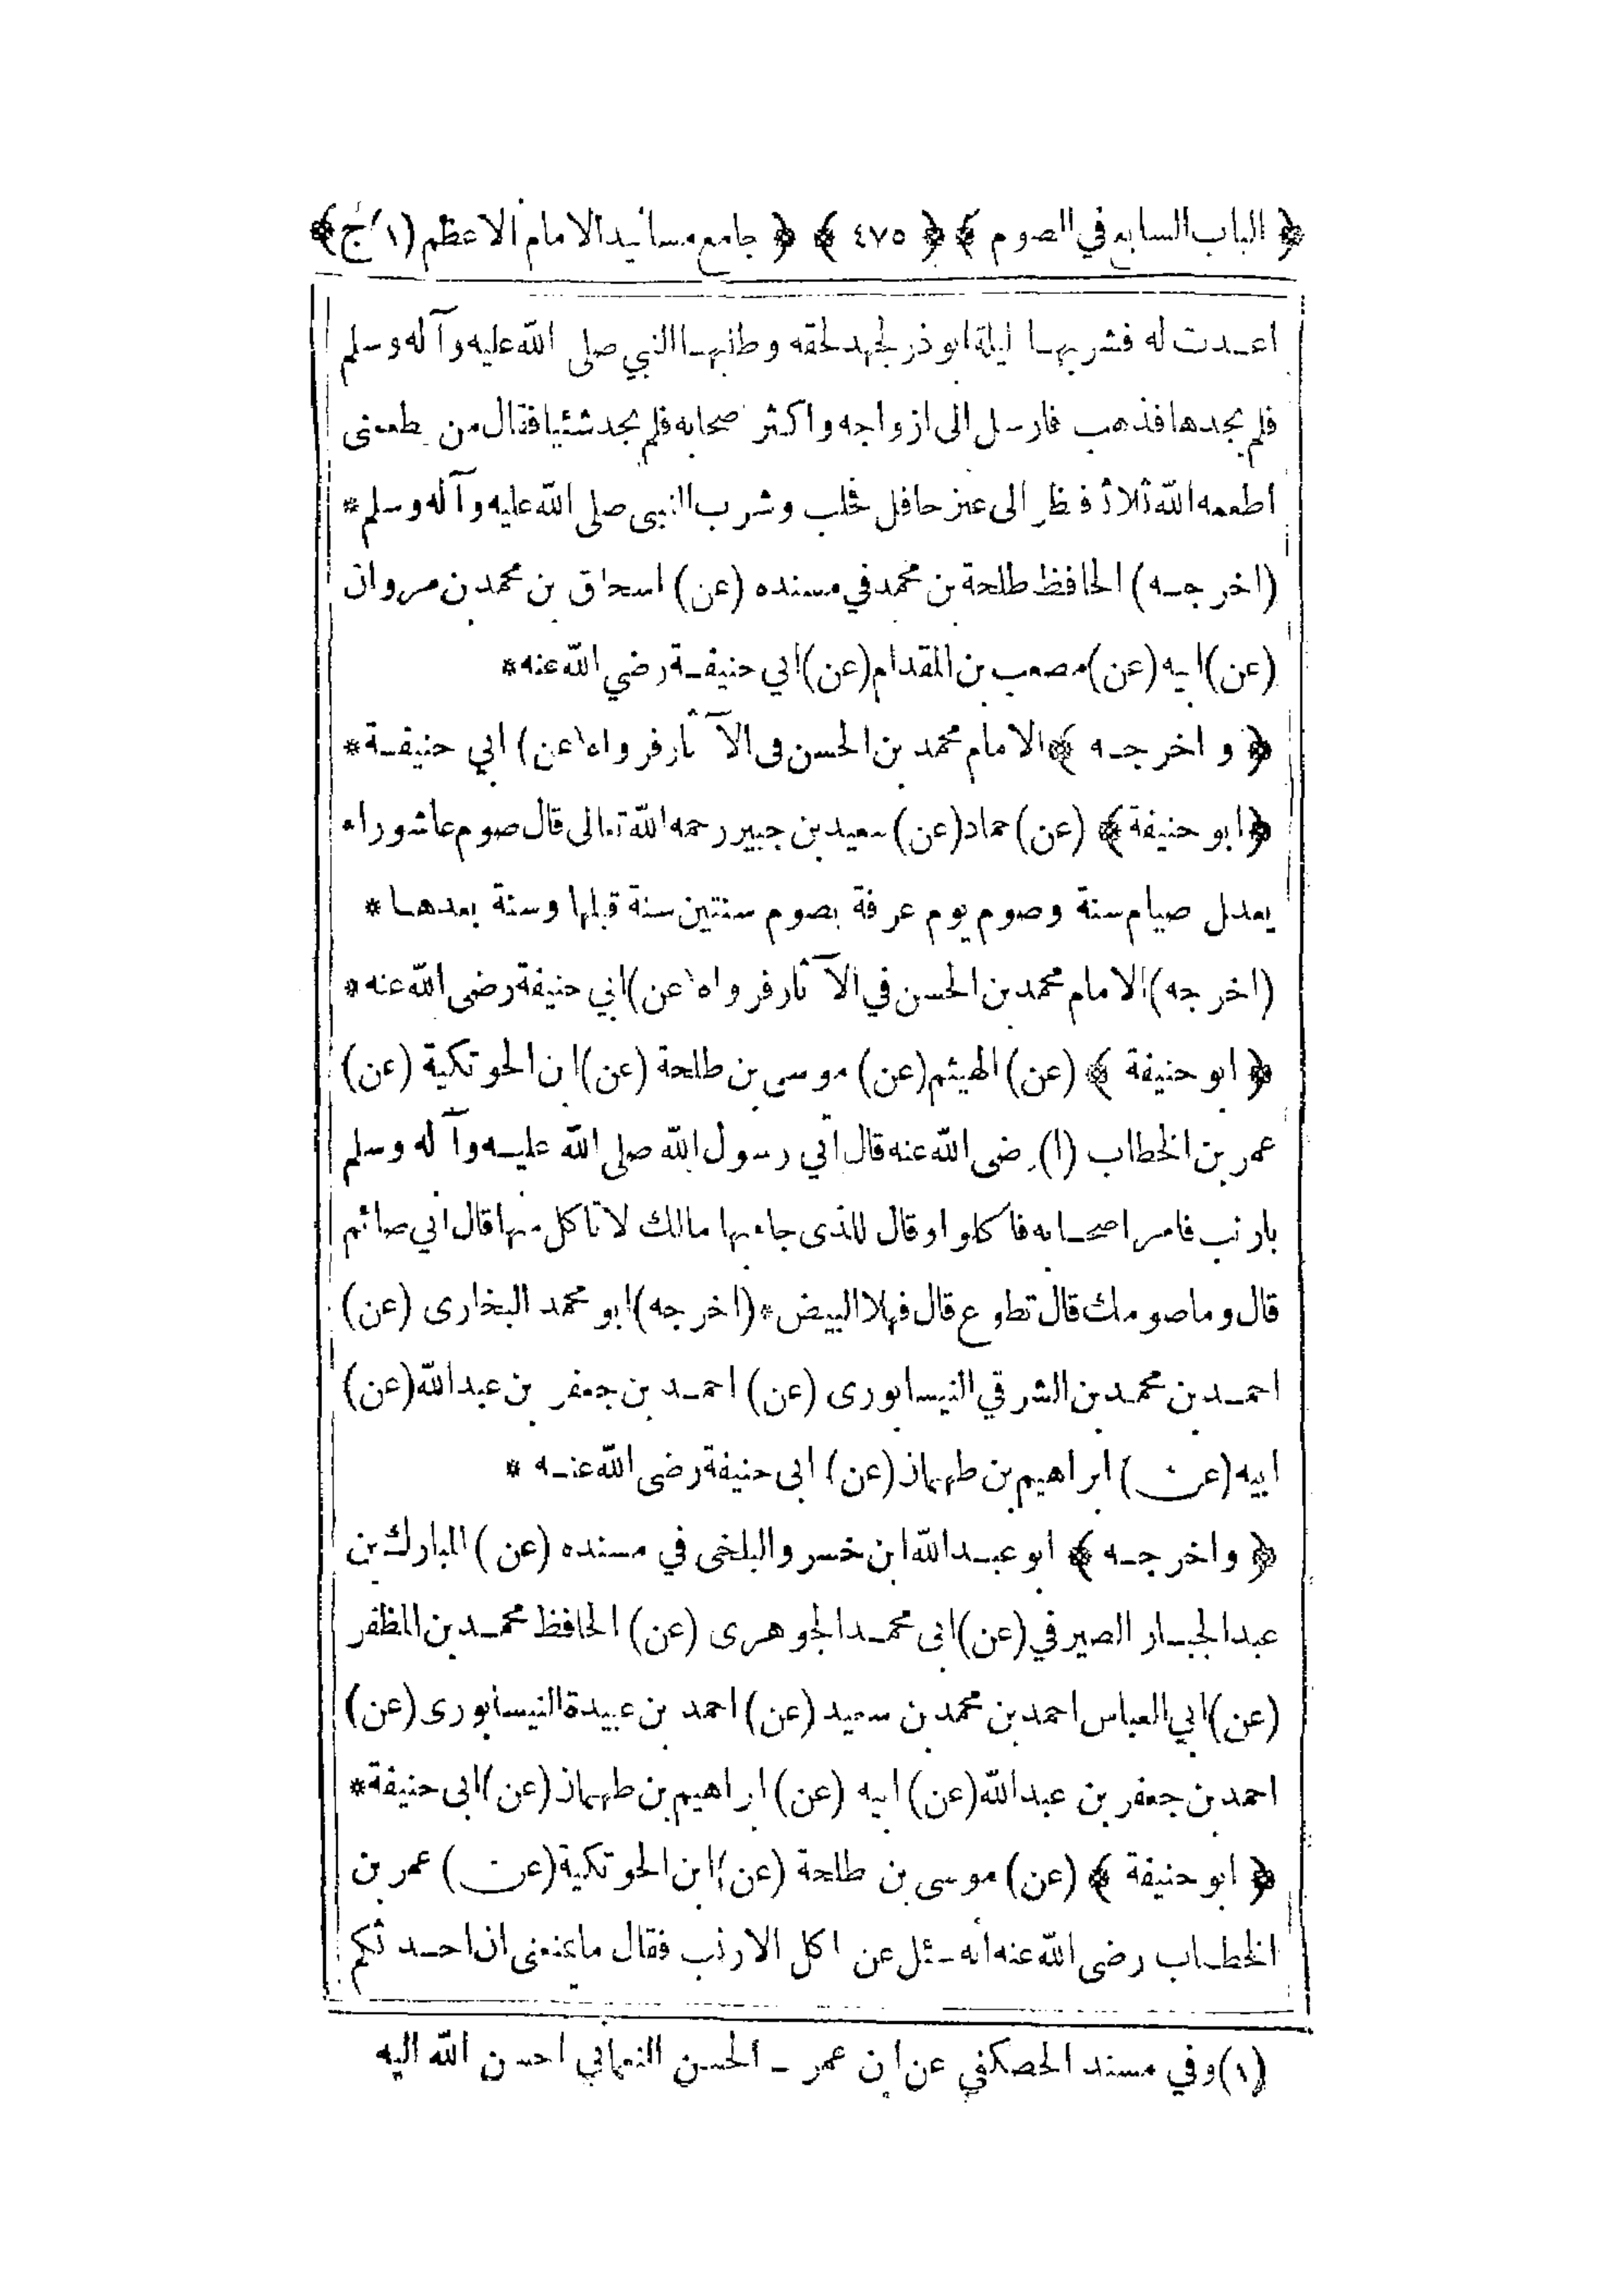 ﴿ الباب السابع في الصوم ﴾ ﴿ ٤٧٥ ﴾ ﴿ جامع مسانيد الامام الاعظم (١/ج) ﴾
اعدت له فشربها ليلة ابوذر لجهد لحقه وطلبها النبي صلى الله عليه وآله وسلم
فلم يجدها فذهب فارسل الى ازواجه واكثر صحابه فلم يجد شئيا فقال من طعمنى
اطعمه الله ثلاثا فنظر الى عنز حافل فحلب وشرب النبى صلى الله عليه وآله وسلم *
(اخرجه) الحافظ طلحة بن محمد في مسنده (عن) اسحاق بن محمد بن مروان
(عن) ابيه (عن) مصعب بن المقدام (عن) ابي حنيفة رضي الله عنه *
﴿ واخرجه ﴾ الامام محمد بن الحسن فى الآثار فرواه (عن) ابي حنيفة *
﴿ ابو حنيفة ﴾ (عن) حماد (عن) سعيد بن جبير رحمه الله تعالى قال صوم عاشوراء
يعدل صيام سنة وصوم يوم عرفة بصوم سنتين سنة قبلها وسنة بعدها *
(اخرجه) الامام محمد بن الحسن في الآثار فرواه (عن) ابي حنيفة رضى الله عنه *
﴿ ابو حنيفة ﴾ (عن) الهيثم (عن) موسى بن طلحة (عن) ابن الحوتكية (عن)
عمر بن الخطاب (١) رضى الله عنه قال اتي رسول الله صلى الله عليه وآله وسلم
بارنب فامر اصحابه فاكلوا وقال للذى جاء بها مالك لا تاكل منها قال اني صائم
قال وما صومك قال تطوع قال فهلا البيض * (اخرجه) ابو محمد البخارى (عن)
احمد بن محمد بن الشرقي النيسابورى (عن) احمد بن جعفر بن عبد الله (عن)
ابيه (عن) ابراهيم بن طهمان (عن) ابى حنيفة رضى الله عنه *
﴿ واخرجه ﴾ ابو عبد الله ابن خسرو البلخى في مسنده (عن) المبارك بن
عبد الجبار الصيرفي (عن) ابى محمد الجوهرى (عن) الحافظ محمد بن المظفر
(عن) ابي العباس احمد بن محمد بن سعيد (عن) احمد بن عبيدة النيسابورى (عن)
احمد بن جعفر بن عبد الله (عن) ابيه (عن) ابراهيم بن طهمان (عن) ابى حنيفة *
﴿ ابو حنيفة ﴾ (عن) موسى بن طلحة (عن) ابن الحوتكية (عن) عمر بن
الخطاب رضى الله عنه انه سئل عن اكل الارنب فقال ما يمنعنى ان احدثكم
(١) وفي مسند الحصكفي عن ابن عمر – الحسن النعماني احسن الله اليه